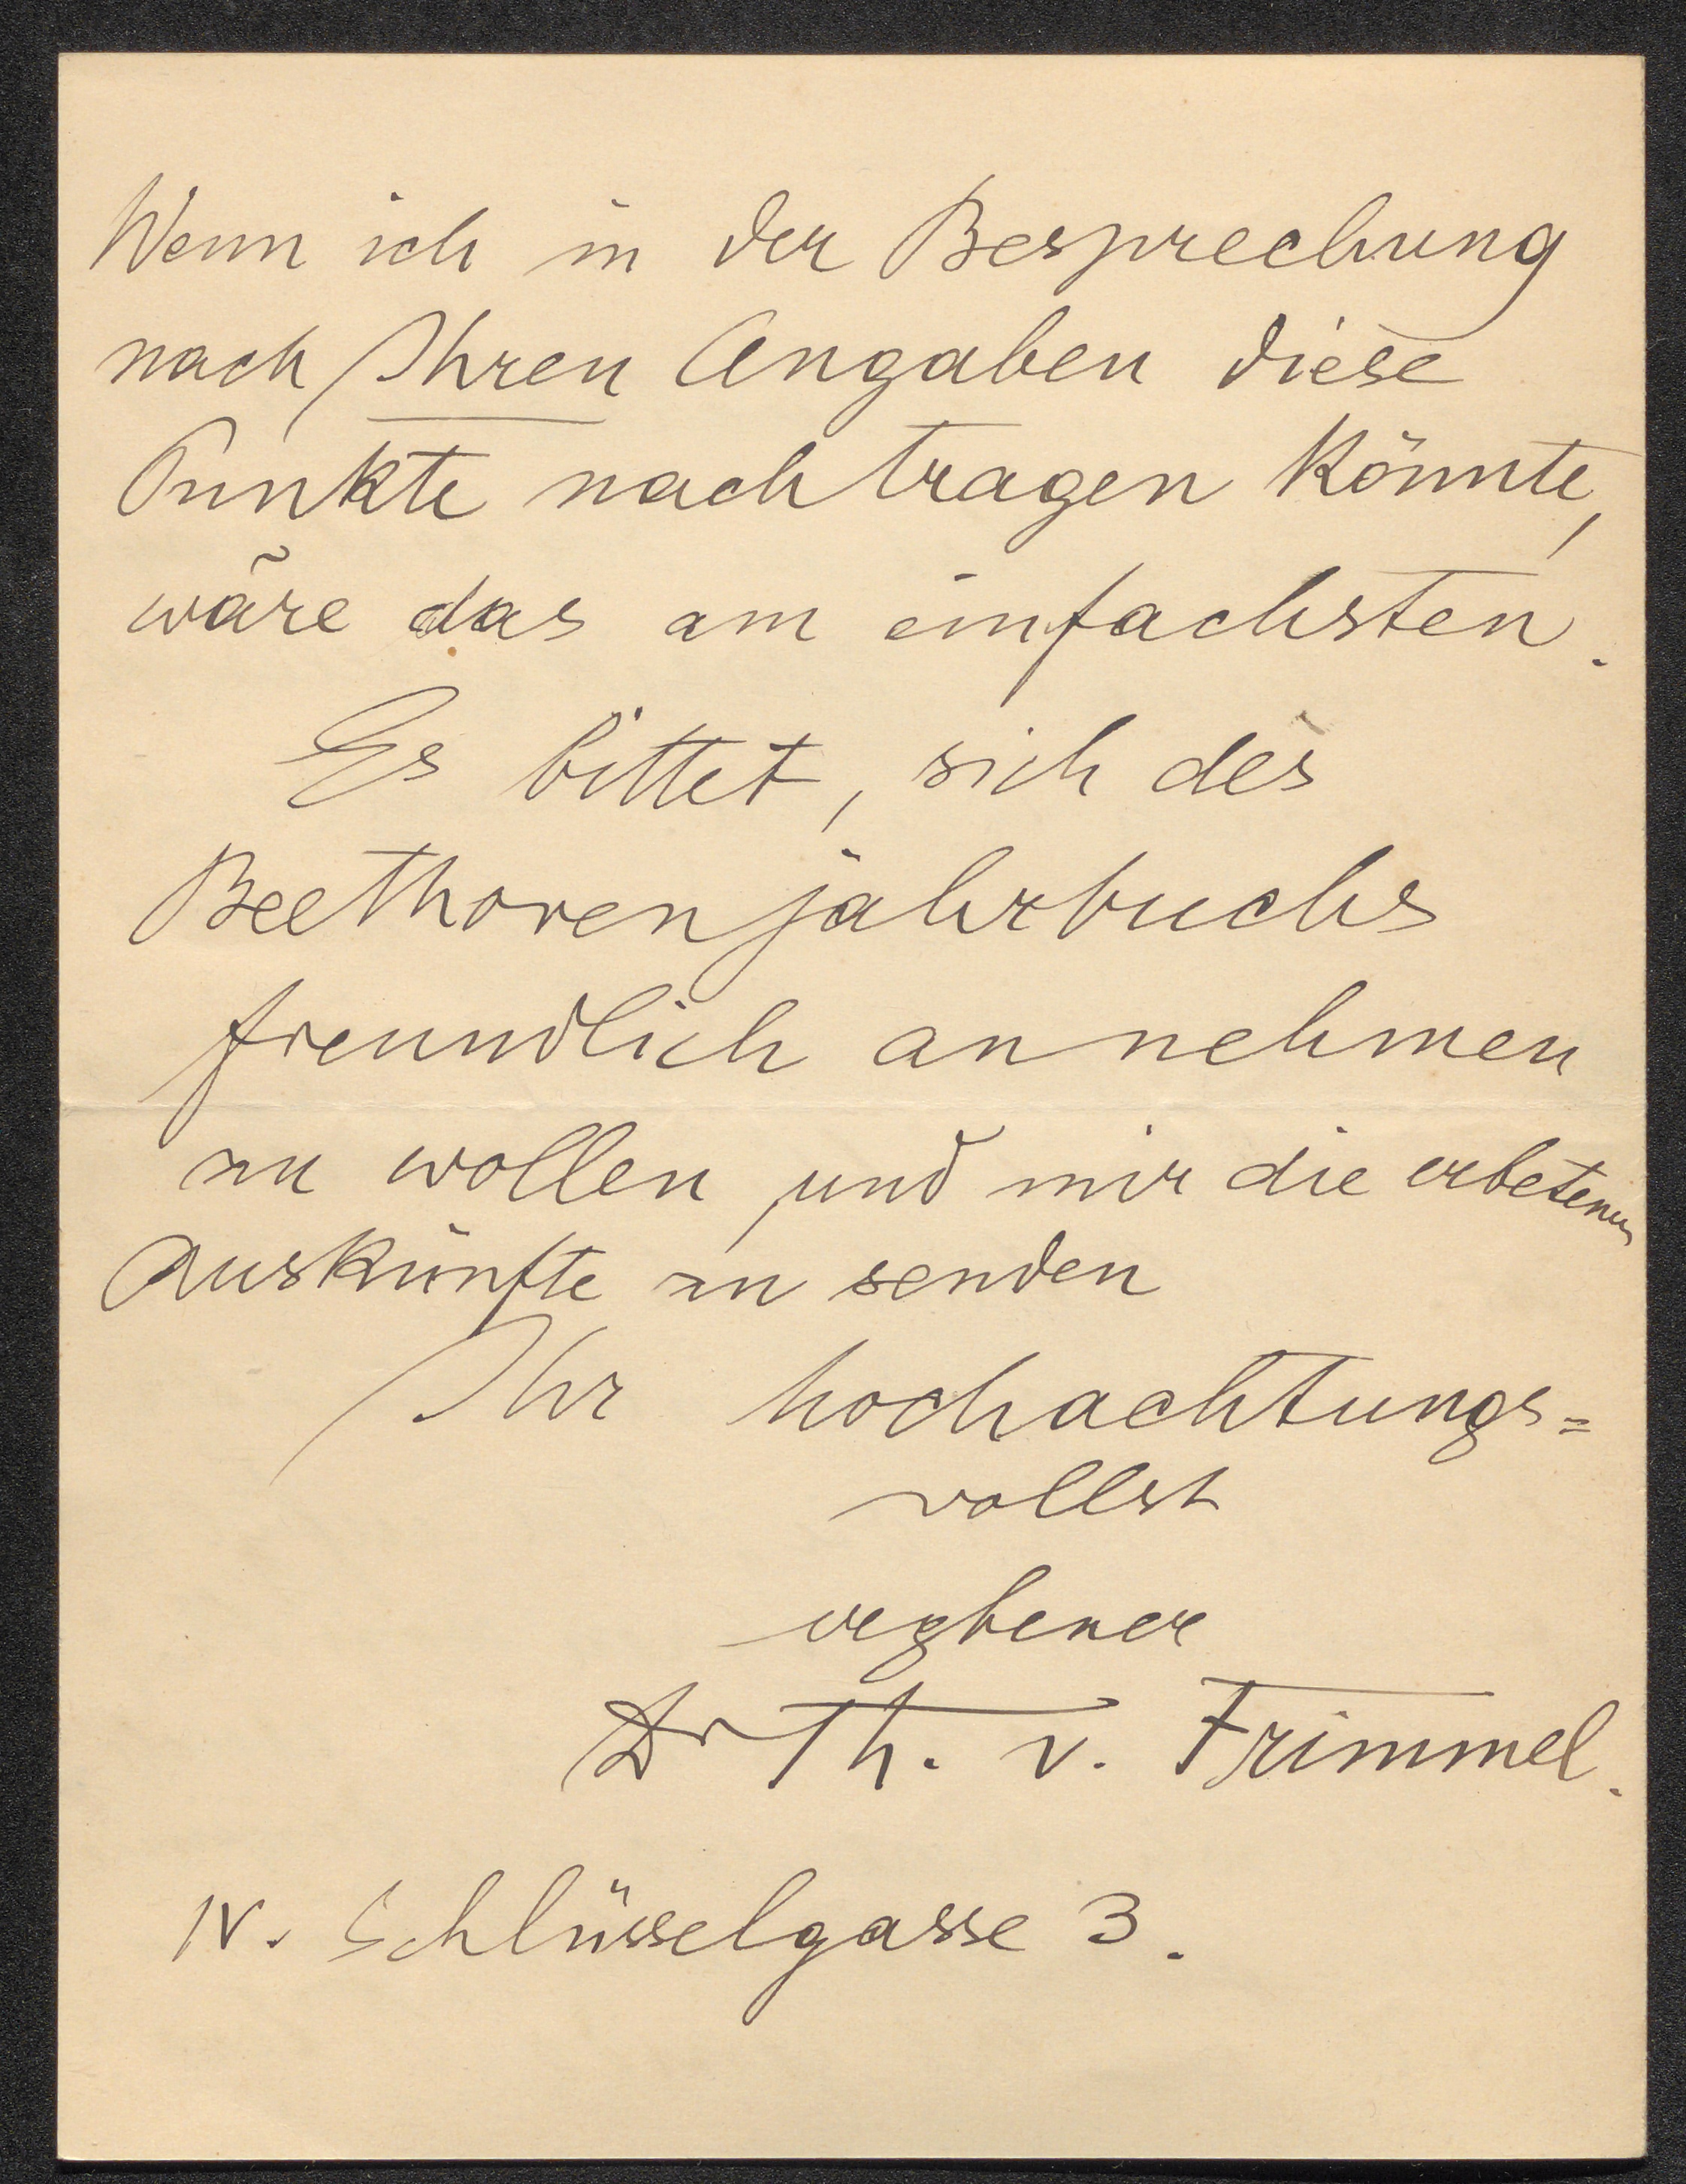 Wenn ich in der Besprechung
nach Ihren Angaben diese
Punkte nachtragen könnte,
wäre das am einfachsten.
Es bittet, sich des
Beethovenjahrbuchs
freundlich annehmen
zu wollen und mir die erbetenen
Auskünfte zu senden
Ihr hochachtungs=
vollst
ergbener
Dr Th. v. Frimmel.
IV. Schlüsselgasse 3.